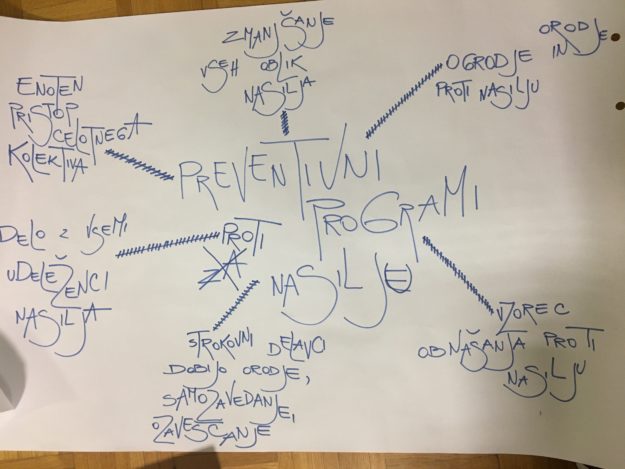 ZMANJŠANJE
VSEH OBLIK
NASILJA
ORODJE
IN
OGRODJE
PROTI NASILJU
ENOTEN
PRISTOP
CELOTNEGA
KOLEKTIVA
PREVENTIVNI
PROGRAMI
PROTI
ZA
NASILJE
DELO Z VSEMI
UDELEŽENCI
NASILJA
STROKOVNI DELAVCI
DOBIJO ORODJE,
SAMOZAVEDANJE,
OZAVEŠČANJE
VZOREC
OBNAŠANJA PROTI
NASILJU